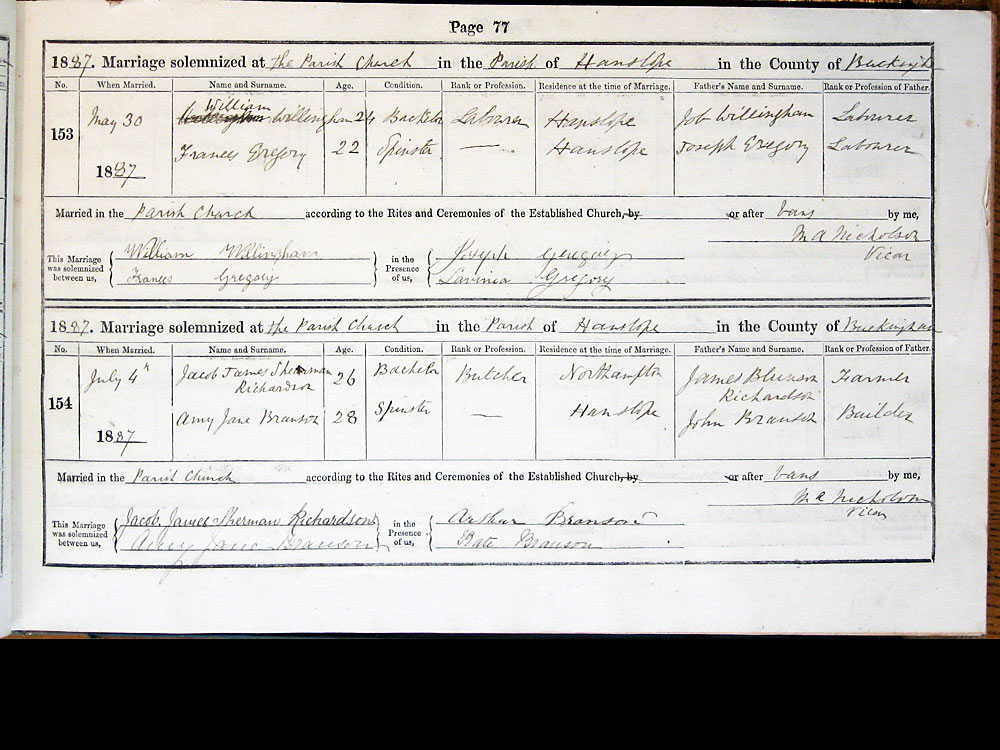 Page 77
1887. Marriage solemnized at the Parish Church in the Parish of Hanslope in the County of Buckingh
No. When Married. Name and Surname. Age. Condition. Rank or Profession. Residence at the time of Marriage. Father's Name and Surname. Rank or Profession of Father.
William
153 May 30 Willingham 24 Bachelor Labourer Hanslope Job Willingham Labourer
Frances Gregory 22 Spinster — Hanslope Joseph Gregory Labourer
1887
Married in the Parish Church according to the Rites and Ceremonies of the Established Church, by or after bans by me,
M A Nicholson
Vicar
This Marriage was solemnized between us, William Willingham in the Presence of us, Joseph Gregory
Frances Gregory Lavinia Gregory
1887. Marriage solemnized at the Parish Church in the Parish of Hanslope in the County of Buckingham
No. When Married. Name and Surname. Age. Condition. Rank or Profession. Residence at the time of Marriage. Father's Name and Surname. Rank or Profession of Father.
154 July 4th Jacob James Sherman 26 Bachelor Butcher Northampton James Blunson Farmer
Richardson Richardson
Amy Jane Branson 28 Spinster — Hanslope John Branson Builder
1887
Married in the Parish Church according to the Rites and Ceremonies of the Established Church, by or after bans by me,
M A Nicholson
Vicar
This Marriage was solemnized between us, Jacob James Sherman Richardson in the Presence of us, Arthur Branson
Amy Jane Branson Kate Branson